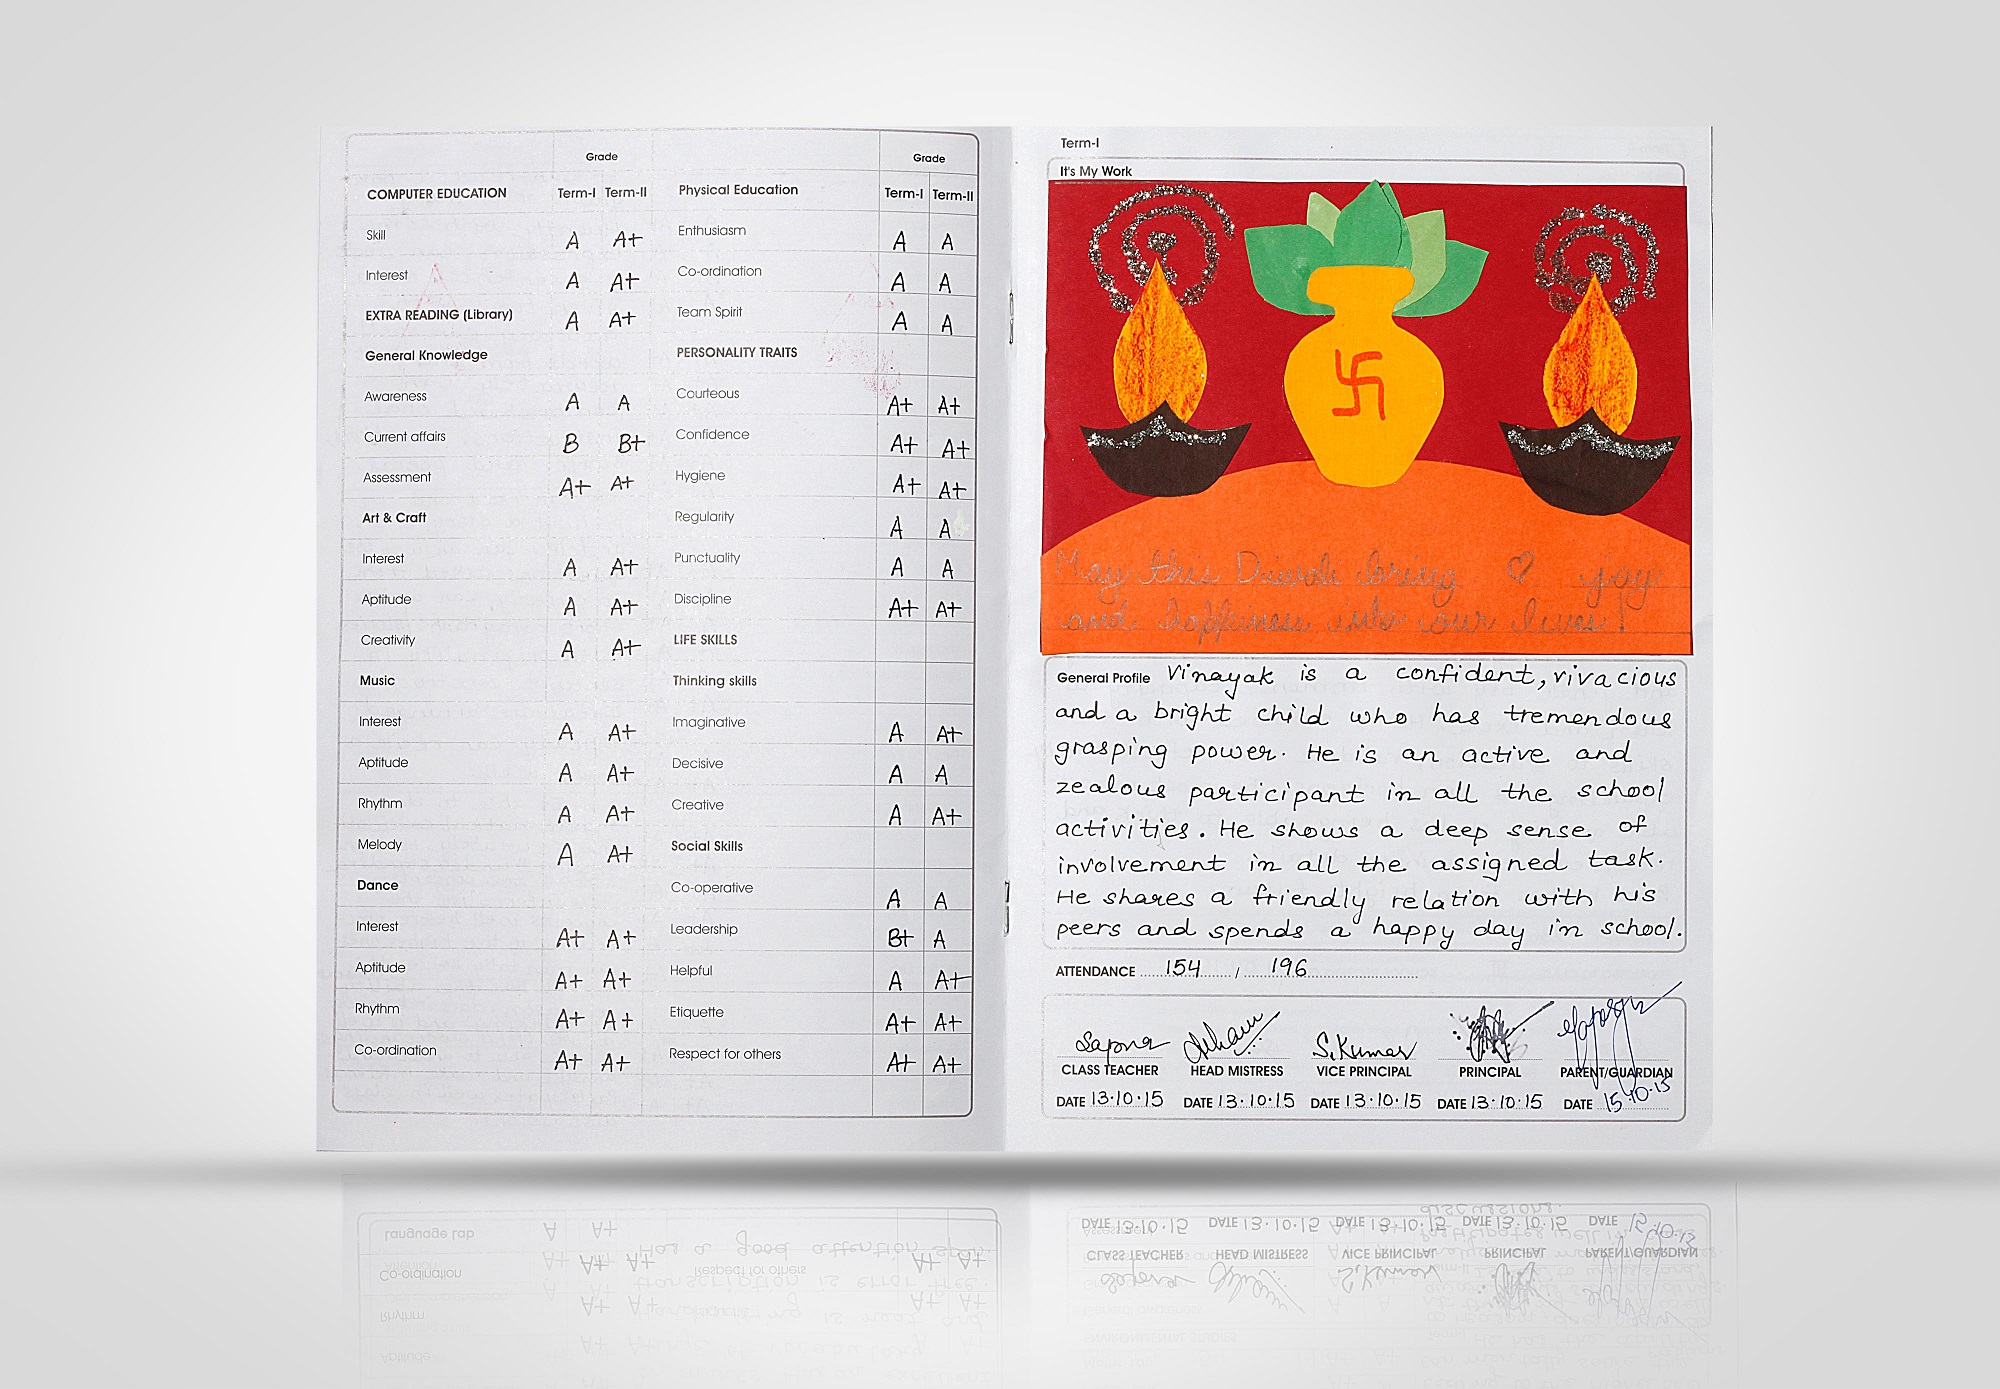 Grade Grade
COMPUTER EDUCATION Term-I Term-II Physical Education Term-I Term-II
Skill A A+ Enthusiasm A A
Interest A A+ Co-ordination A A
EXTRA READING (Library) A A+ Team Spirit A A
General Knowledge PERSONALITY TRAITS
Awareness A A Courteous A+ A+
Current affairs B B+ Confidence A+ A+
Assessment A+ A+ Hygiene A+ A+
Art & Craft Regularity A A
Interest A A+ Punctuality A A
Aptitude A A+ Discipline A+ A+
Creativity A A+ LIFE SKILLS
Music Thinking skills
Interest A A+ Imaginative A A+
Aptitude A A+ Decisive A A
Rhythm A A+ Creative A A+
Melody A A+ Social Skills
Dance Co-operative A A
Interest A+ A+ Leadership B+ A
Aptitude A+ A+ Helpful A A+
Rhythm A+ A+ Etiquette A+ A+
Co-ordination A+ A+ Respect for others A+ A+
Term-I
It's My Work
May this Diwali bring joy
and happiness into our lives!
General Profile Vinayak is a confident, vivacious
and a bright child who has tremendous
grasping power. He is an active and
zealous participant in all the school
activities. He shows a deep sense of
involvement in all the assigned task.
He shares a friendly relation with his
peers and spends a happy day in school.
ATTENDANCE 154 / 196
Sapna S.Kumar
CLASS TEACHER HEAD MISTRESS VICE PRINCIPAL PRINCIPAL PARENT/GUARDIAN
DATE 13.10.15 DATE 13.10.15 DATE 13.10.15 DATE 13.10.15 DATE 15.10.15